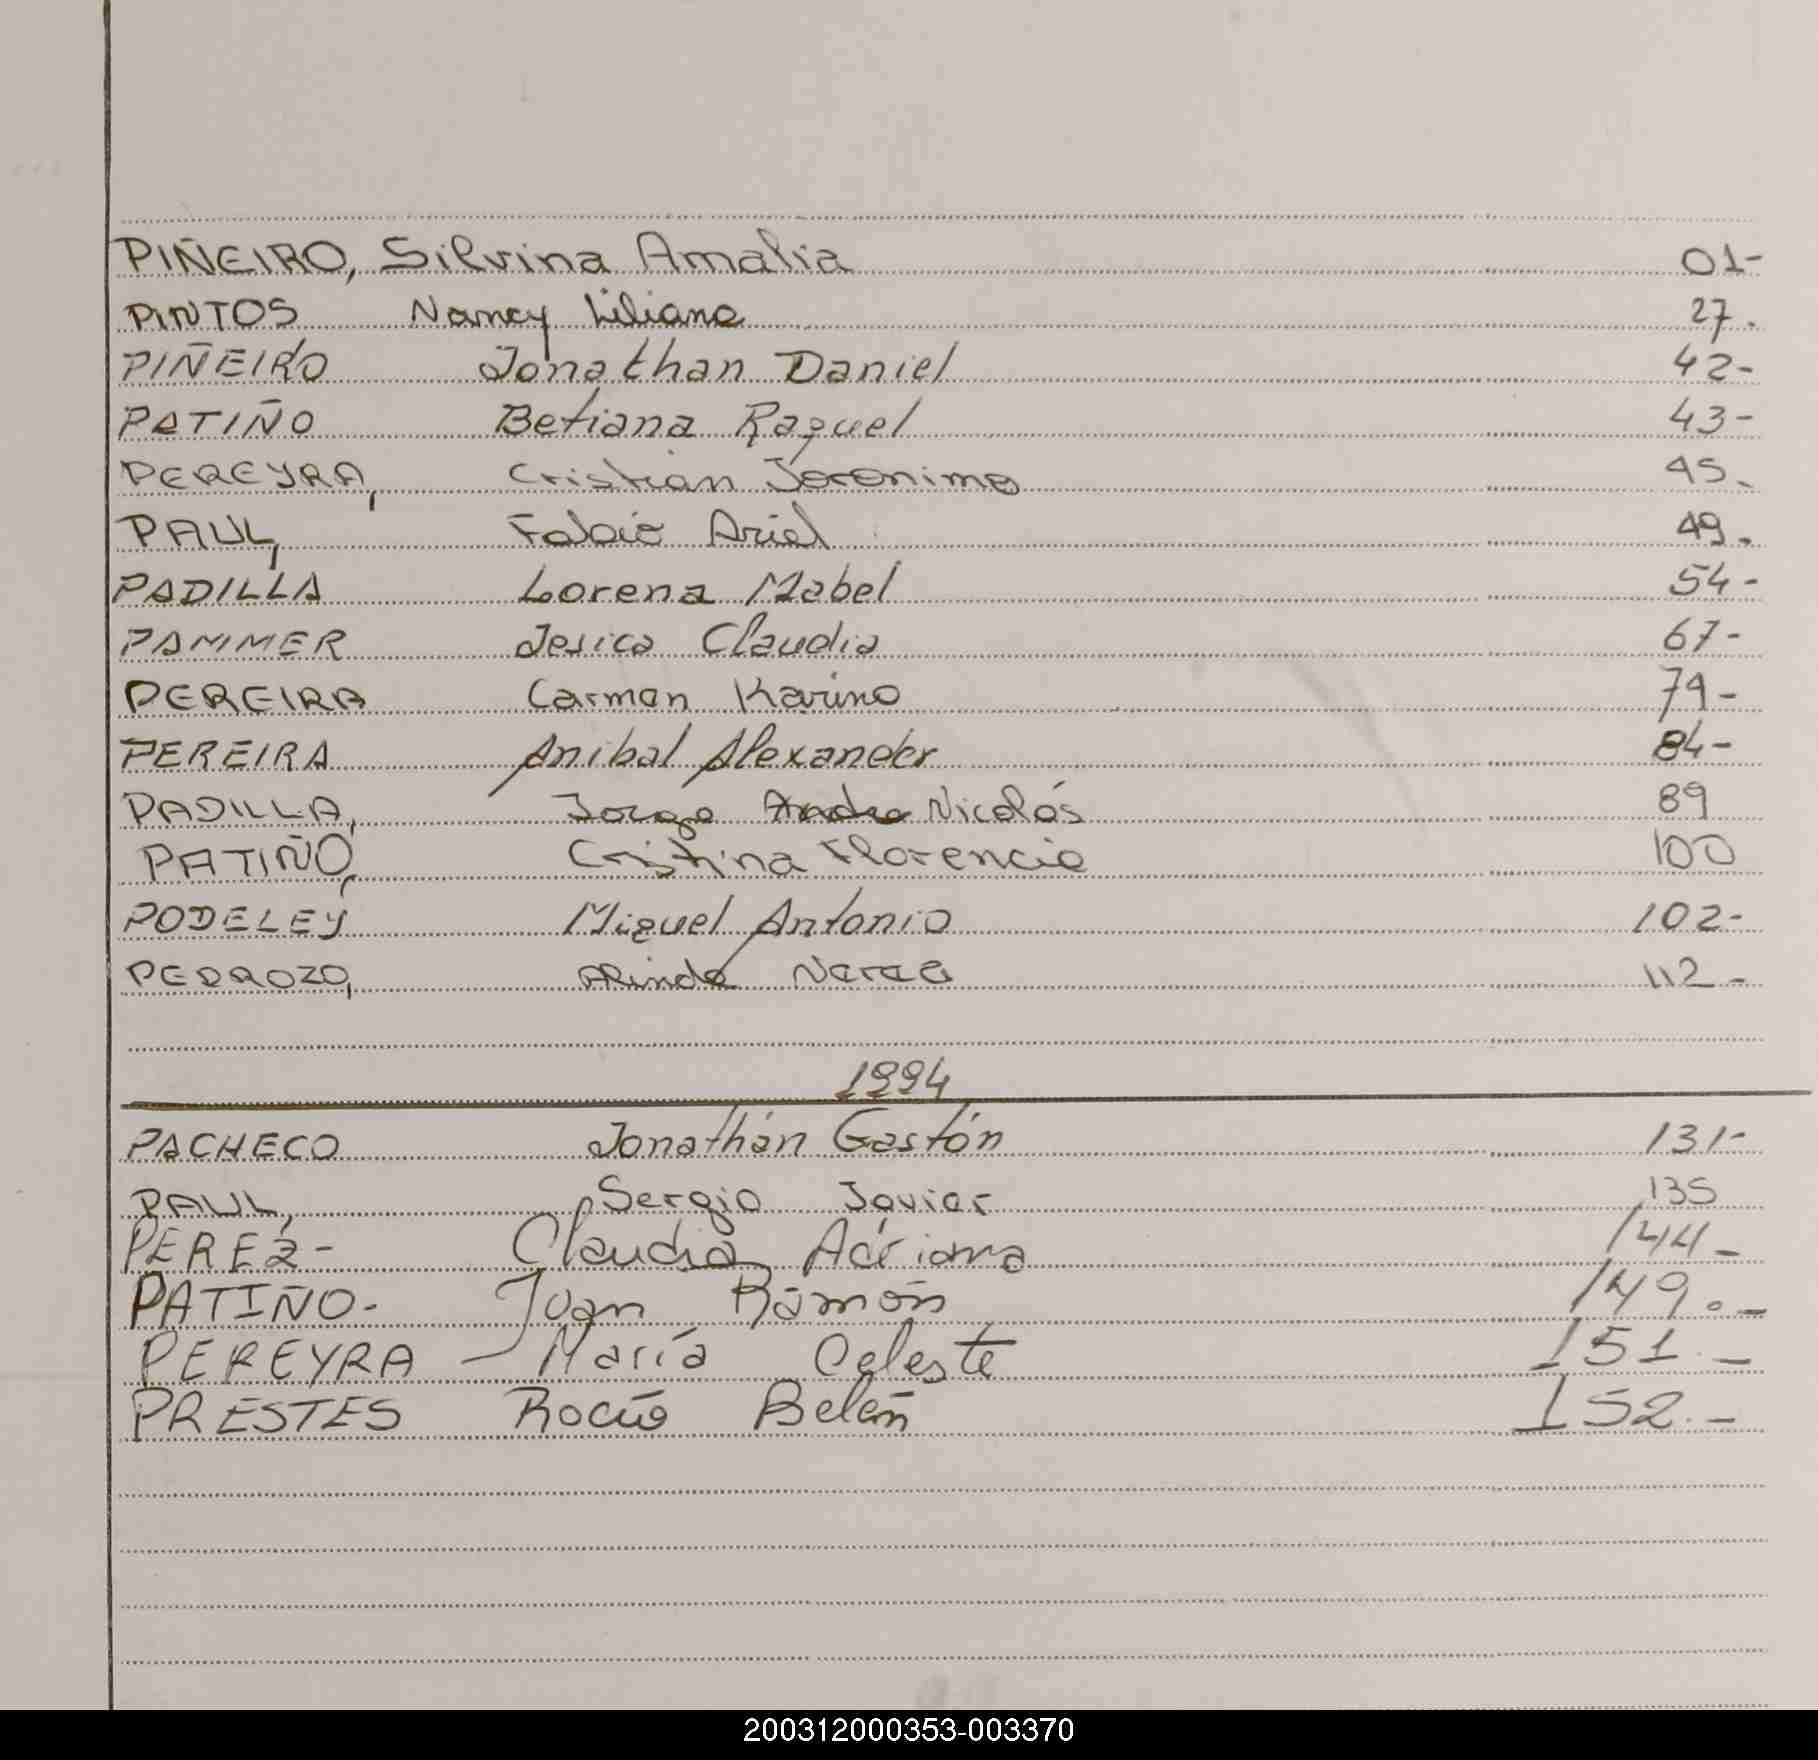 PIÑEIRO, Silvina Amalia 01-
PINTOS Nancy Liliana 27.
PIÑEIRO Jonathan Daniel 42-
PATIÑO Betiana Raquel 43-
PEREYRA, Cristian Jeronimo 45-
PAUL, Fabio Ariel 49.
PADILLA Lorena Mabel 54-
PAMMER Jesica Claudia 67-
PEREIRA Carmen Karina 79-
PEREIRA Anibal Alexander 84-
PADILLA, Jorge Nicolás 89
PATIÑO, Cristina Florencia 100
PODELEY Miguel Antonio 102-
PEDROZO, 112-
1994
PACHECO Jonathán Gastón 131-
PAUL, Sergio Javier 135
PEREZ- Claudia Adriana 144-
PATIÑO- Juan Ramón 149.-
PEREYRA - María Celeste 151.-
PRESTES Rocío Belén 152.-
200312000353-003370